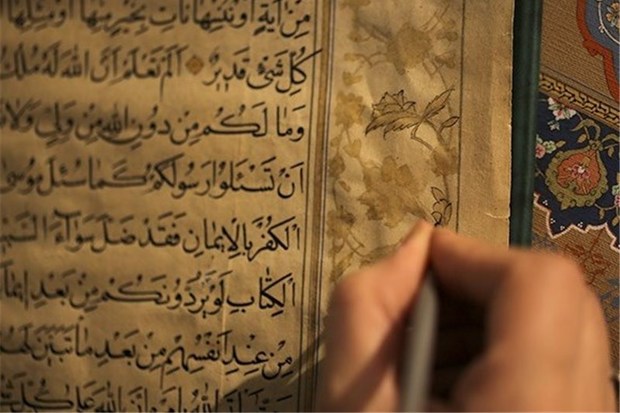 مِنْ اٰيَةٍ اَوْ نُنْسِهَا نَأْتِ بِخَيْرٍ مِنْهَا اَوْ مِثْلِهَا
كُلِّ شَیْءٍ قَدِيرٌ اَلَمْ تَعْلَمْ اَنَّ اللهَ لَهُ مُلْكُ
وَمَا لَكُمْ مِنْ دُونِ اللهِ مِنْ وَلِيٍّ وَلَا
اَنْ تَسْئَلُوا رَسُولَكُمْ كَمَا سُئِلَ مُوسٰى
الْكُفْرَ بِالْاِيمَانِ فَقَدْ ضَلَّ سَوَآءَ
الْكِتَابِ لَوْ يَرُدُّونَكُمْ مِنْ بَعْدِ
مِنْ عِنْدِ اَنْفُسِهِمْ مِنْ بَعْدِ مَا تَبَيَّنَ
اِنَّ اللهَ عَلٰى كُلِّ